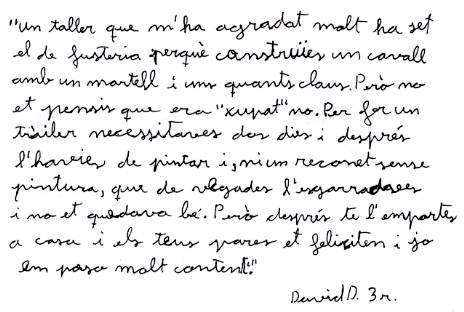 "un taller que m'ha agradat molt ha set
el de fusteria perquè construïes un cavall
amb un martell i uns quants claus. Però no
et pensis que era "xupat" no. Per fer un
tràiler necessitaves dos dies i després
l'havies de pintar i, ni un reconet sense
pintura, que de vegades l'esgarraves
i no et quedava bé. Però després te l'emportes
a casa i els teus pares et feliciten i jo
em poso molt content."
David D. 3r.